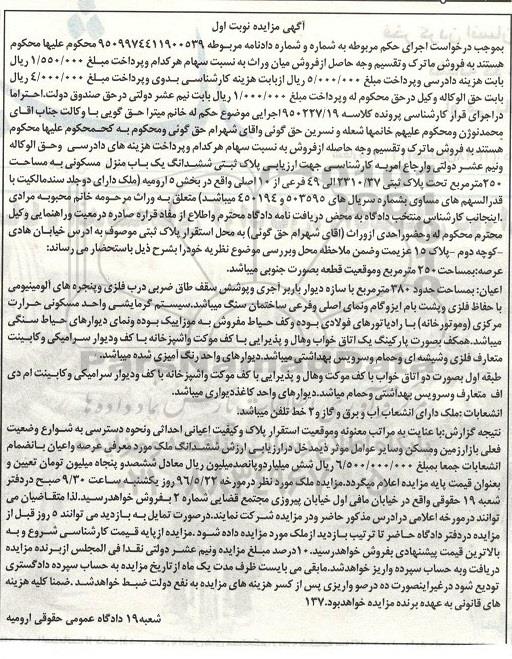 آگهی مزایده نوبت اول
بموجب درخواست اجرای حکم مربوطه به شماره و شماره دادنامه مربوطه ۹۵۰۹۹۷۴۴۱۱۹۰۰۵۳۹ محکوم علیها محکوم
هستند به فروش ماترک و تقسیم وجه حاصل ازفروش میان وراث به نسبت سهام هرکدام و پرداخت مبلغ ۱/۵۵۰/۰۰۰ ریال
بابت هزینه دادرسی و پرداخت مبلغ ۵/۰۰۰/۰۰۰ ریال ازبابت هزینه کارشناسی بدوی و پرداخت مبلغ ۴/۰۰۰/۰۰۰ ریال
بابت حق الوکاله وکیل در حق محکوم له و پرداخت مبلغ ۱/۰۰۰/۰۰۰ ریال بابت نیم عشر دولتی در حق صندوق دولت.احتراما
در اجرای قرار کارشناسی پرونده کلاسه ۹۵۰۲۲۷/۱۹اجرایی موضوع حکم له خانم میترا حق گویی با وکالت جناب اقای
محمدنوژن ومحکوم علیهم خانمها شعله و نسرین حق گوئی واقای شهرام حق گوئی ومحکوم به کحمحکوم علیها محکوم
هستند به فروش ماترک و تقسیم وجه حاصله ازفروش به نسبت سهام هرکدام و پرداخت هزینه های دادرسی وحق الوکاله
ونیم عشر دولتی وارجاع امربه کارشناسی جهت ارزیابی پلاک ثبتی ششدانگ یک باب منزل مسکونی به مساحت
۲۵۰مترمربع تحت پلاک ثبتی ۲۳۱۰/۳۷الی ۴۹ فرعی از ۱۰ اصلی واقع در بخش ۵ ارومیه (ملک دارای دوجلد سندمالکیت با
قدرالسهم های مساوی بشماره سریال های ۵۰۳۵۹۵و ۴۵۰۱۹۴ میباشد) متعلق به وراث مرحومه خانم محبوبه مرادی
.اینجانب کارشناس منتخب دادگاه به محض دریافت نامه دادگاه محترم واطلاع از مفاد قراره صادره درمعیت وراهنمایی وکیل
محترم محکوم له وحضوراحدی ازوراث (اقای شهرام حق گوئی) به محل استقرار پلاک ثبتی موصوفه به ادرس خیابان هادی
-کوچه دوم -پلاک ۱۵ عزیمت وضمن ملاحظه محل وبررسی موضوع نظریه خودرا بشرح ذیل باستحضار می رساند:
عرصه:بمساحت ۲۵۰ مترمربع وموقعیت قطعه بصورت جنوبی میباشد.
اعیان: بمساحت حدود ۳۸۰ مترمربع با سازه دیوار باربر آجری وپوشش سقف طاق ضربی درب فلزی وپنجره های آلومینیومی
با حفاظ فلزی وپشت بام ایزوگام ونمای اصلی وفرعی ساختمان سنگ میباشد.سیستم گرمایشی واحد مسکونی حرارت
مرکزی (وموتورخانه) با رادیاتورهای فولادی بوده وکف حیاط مفروش به موزاییک بوده ونمای دیوارهای حیاط سنگی
میباشد.همکف بصورت پارکینگ یک اتاق خواب وهال و پذیرایی با کف موکت واشپزخانه با کف ودیوار سرامیکی وکابینت
متعارف فلزی وشیشه ای وحمام وسرویس بهداشتی میباشد.دیوارهای واحد رنگ آمیزی شده میباشد.
طبقه اول بصورت دو اتاق خواب با کف موکت وهال و پذیرایی با کف موکت واشپزخانه با کف ودیوار سرامیکی وکابینت ام دی
اف متعارف وسرویس بهداشتی وحمام میباشد.دیوارهای واحد کاغذدیواری میباشد.
انشعابات :ملک دارای انشعاب آب و برق و گاز و۲ خط تلفن میباشد.
نتیجه گزارش:با عنایت به مراتب معنونه وموقعیت استقرار پلاک وکیفیت اعیانی احداثی ونحوه دسترسی به شوارع وضعیت
فعلی بازارزمین ومسکن وسایر عوامل موثر ذیمدخل درارزیابی ارزش ششدانگ ملک مورد معرفی عرصه واعیان بانضمام
انشعابات جمعا بمبلغ ۶/۵۰۰/۰۰۰/۰۰۰ ریال شش میلیاردوپانصدمیلیون ریال معادل ششصدو پنجاه میلیون تومان تعیین و
بعنوان قیمت پایه مزایده اعلام میگردد.مزایده ملک مورد نظر درمورخه ۹۶/۵/۲۲ روز یکشنبه ساعت ۹/۳۰ صبح دردفتر
شعبه ۱۹ حقوقی واقع در خیابان مافی اول خیابان پیروزی مجتمع قضایی شماره ۲ بفروش خواهدرسید.لذا متقاضیان می
توانند درمورخه اعلامی درادرس مذکور حاضر ودر مزایده شرکت نمایند.درصورت تمایل به بازدید می توانند ۵ روز قبل از
مزایده دردفتر دادگاه حاضر تا ترتیب بازدید ازملک مورد مزایده داده شود .مزایده ازپایه قیمت کارشناسی شروع و به
بالاترین قیمت پیشنهادی بفروش خواهدرسید.۱۰درصد مبلغ مزایده ونیم عشر دولتی نقدا فی المجلس ازبرنده مزایده
دریافت وبه حساب سپرده واریز خواهدشد.مابقی می بایست ظرف مدت یک ماه از تاریخ مزایده به حساب سپرده دادگستری
تودیع شود درغیراینصورت ده درصد واریزی پس از کسر هزینه های مزایده به نفع دولت ضبط خواهدشد .ضمنا کلیه هزینه
های قانونی به عهده برنده مزایده خواهدبود.۱۳۷
شعبه۱۹ دادگاه عمومی حقوقی ارومیه